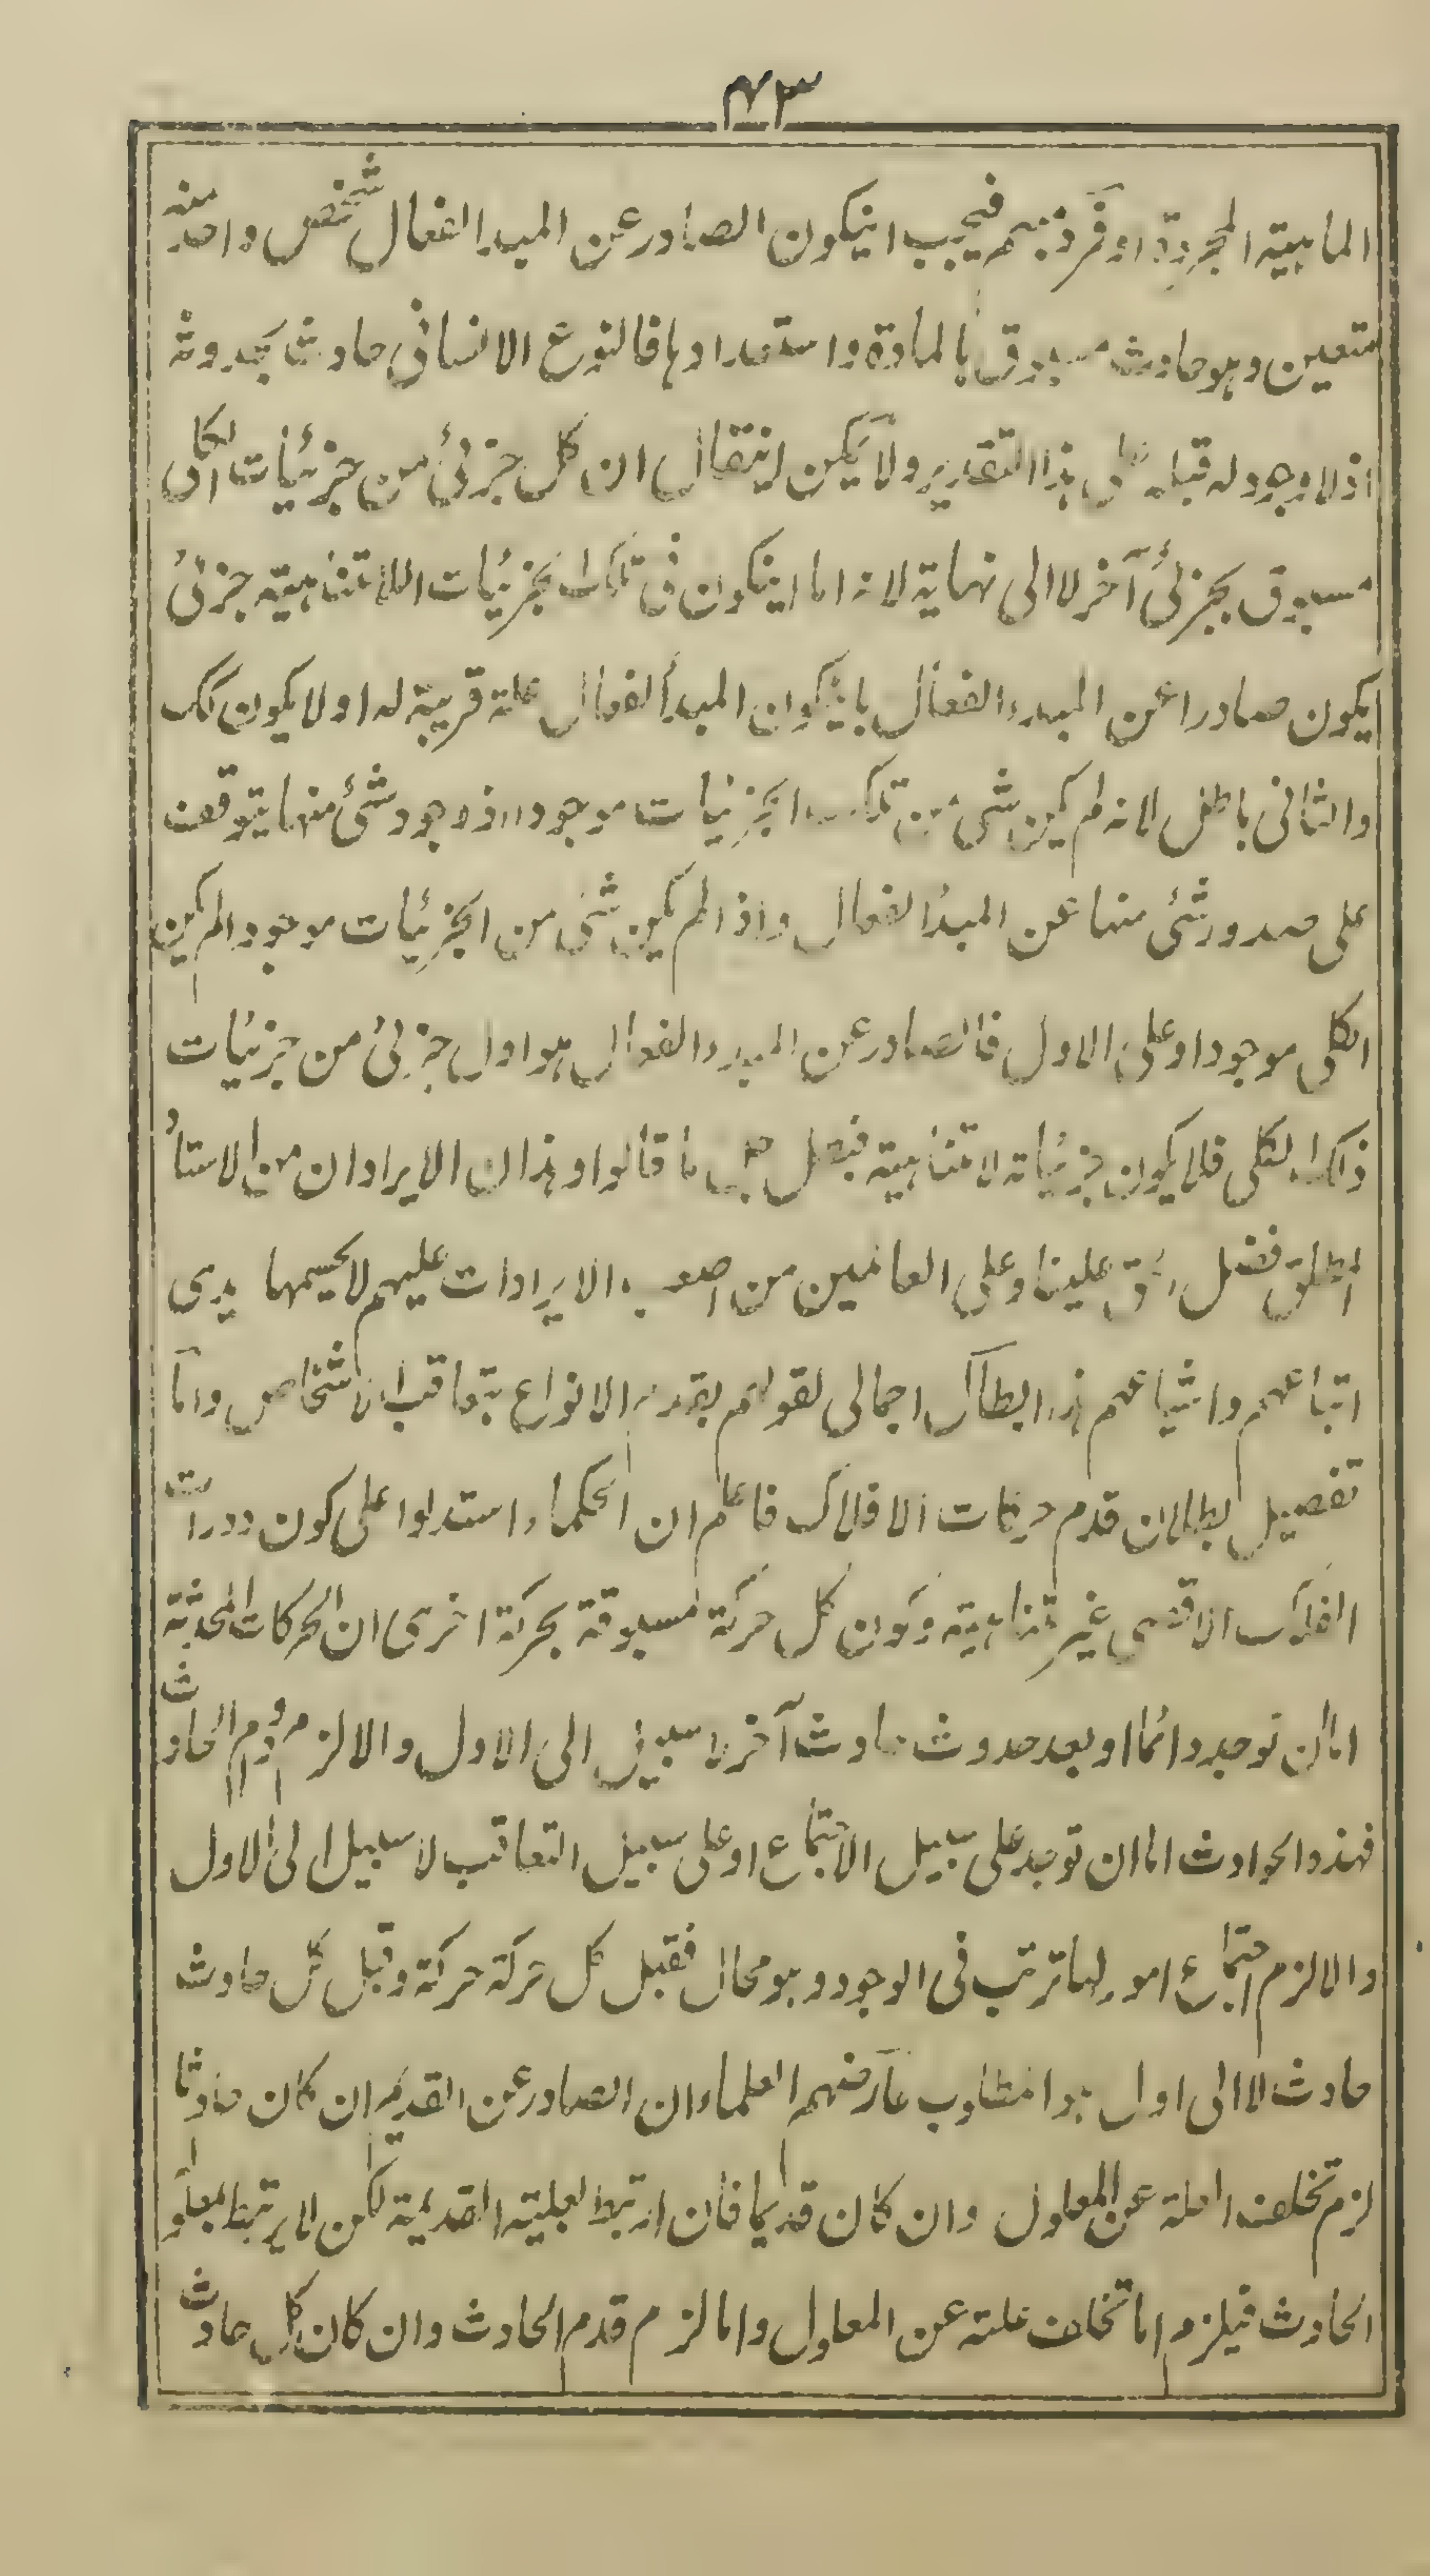 ٤٣
الماهية المجردة او فرد مبهم فيجب انيكون الصادر عن المبدا الفعال شخص واحد منه
متعين وهو حادث مسبوق بالمادة واستعدادها فالنوع الانسانى حادث بحدوثه
اذ لا وجود له قبله على هذا التقدير ولا يمكن انيقال ان كل جزئى من جزئيات الكلى
مسبوق بجزئى آخر لا الى نهاية لانه اما انيكون فى تلك الجزئيات اللامتناهية جزئى
يكون صادرا عن المبدء الفعال بانيكون المبدأ الفعال علة قريبة له او لا يكون كك
والثانى باطل لانه لم يكن شئ من تلك الجزئيات موجودا اذ وجود شئ منها يتوقف
على صدور شئى منها عن المبدأ الفعال واذا لم يكن شئ من الجزئيات موجودا لم يكن
الكلى موجودا وعلى الاول فالصادر عن المبدء الفعال هو اول جزئى من جزئيات
ذلك الكلى فلا يكون جزئياته لامتناهية فبطل ما قالوا وهذان الايرادان من الاستاذ
المطلق فضل حق علينا وعلى العالمين من اصعب الايرادات عليهم لا يحسمها يدى
اتباعهم واشياعهم هذا ابطال اجمالى لقولهم بقدم الانواع بتعاقب الاشخاص واما
تفصيل بطلان قدم حركات الافلاك فاعلم ان الحكماء استدلوا على كون دورات
الفلك الاقصى غير متناهية وكون كل حركة مسبوقة بحركة اخرى ان الحركات المحدثة
اما ان توجد دائما او بعد حدوث حادث آخر لا سبيل الى الاول والا لزم دوام الحادث
فهذه الحوادث اما ان توجد على سبيل الاجتماع او على سبيل التعاقب لا سبيل الى الاول
والا لزم اجتماع امور لها ترتب فى الوجود وهو محال فقبل كل حركة حركة وقبل كل حادث
حادث لا الى اول هذا مطلوب عارضهم العلماء ان الصادر عن القديم ان كان حادثا
لزم تخلف العلة عن المعلول وان كان قديما فان ارتبط بعلية القديمة لكن لا يرتبط بمعلو
الحادث فيلزم اما تخلف علته عن المعلول واما لزم قدم الحادث وان كان كل حادث